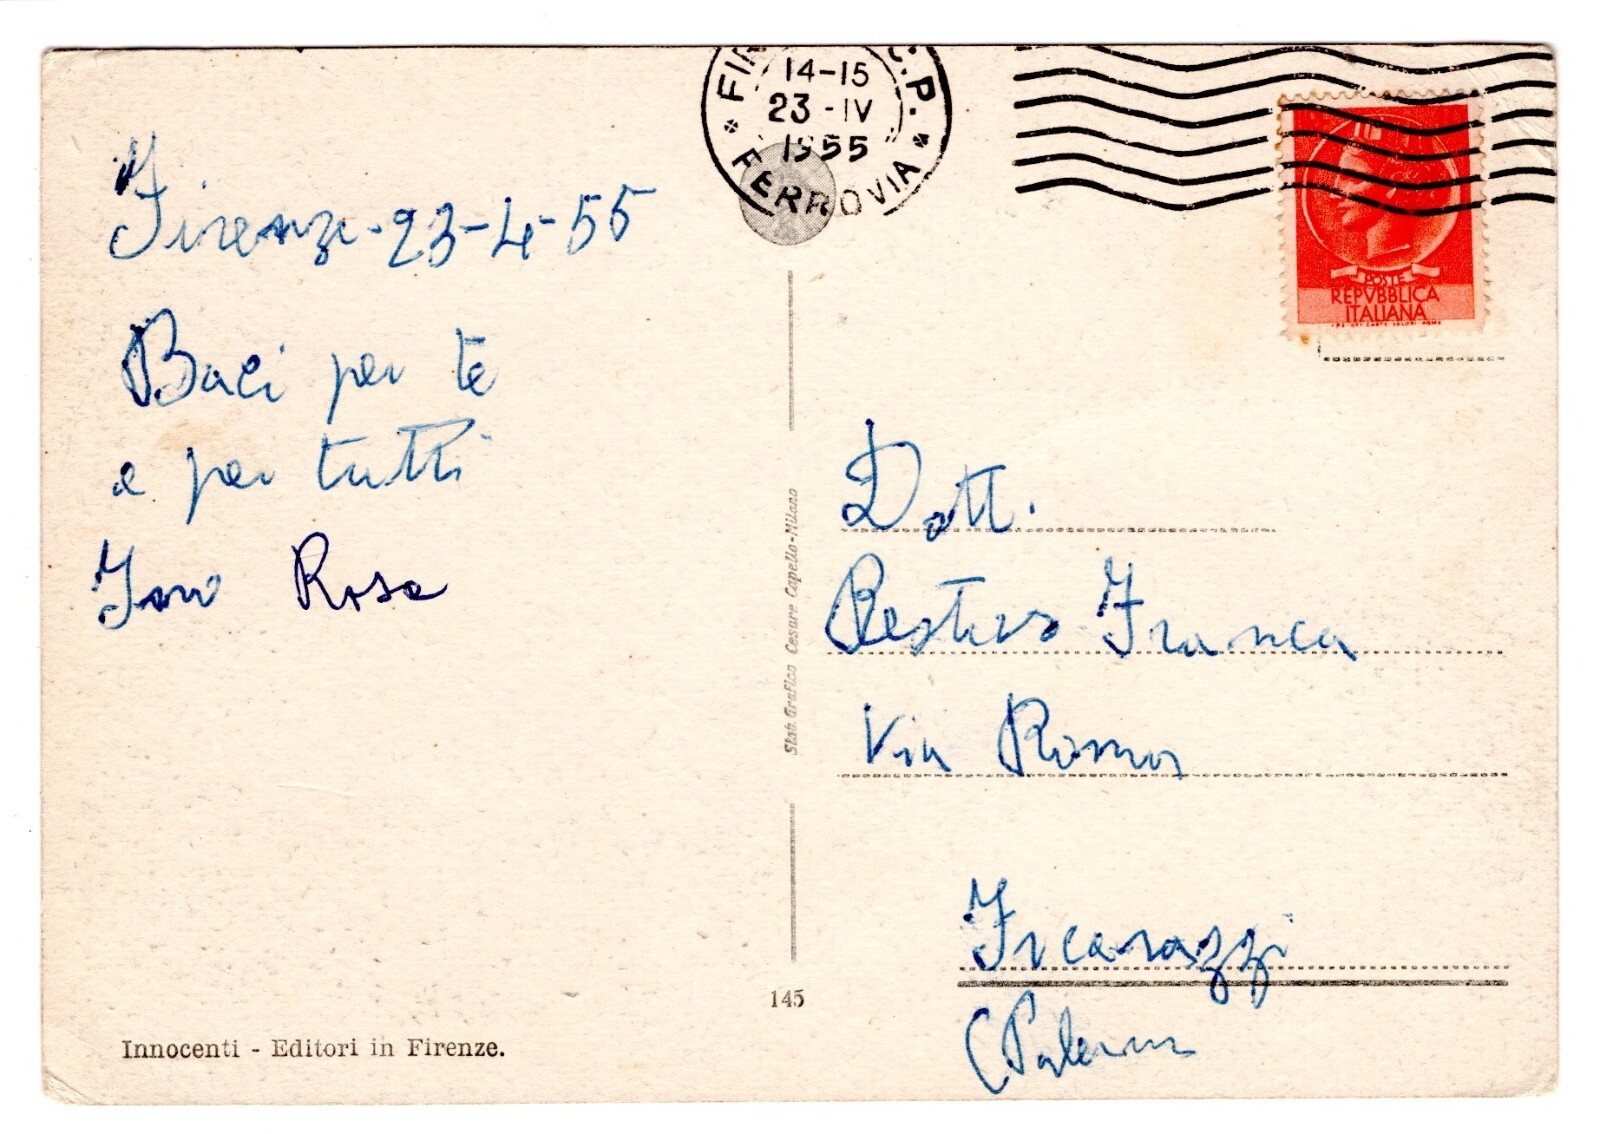 FIR C.P.
14-15
23-IV
1955
FERROVIA
POSTE
REPVBBLICA
ITALIANA
Firenze-23-4-55
Baci per te
e per tutti
Rosa
Dott.
Restivo Franca
Via Roma
Ficarazzi
(Palermo
Stab. Grafico Cesare Capello-Milano
145
Innocenti - Editori in Firenze.